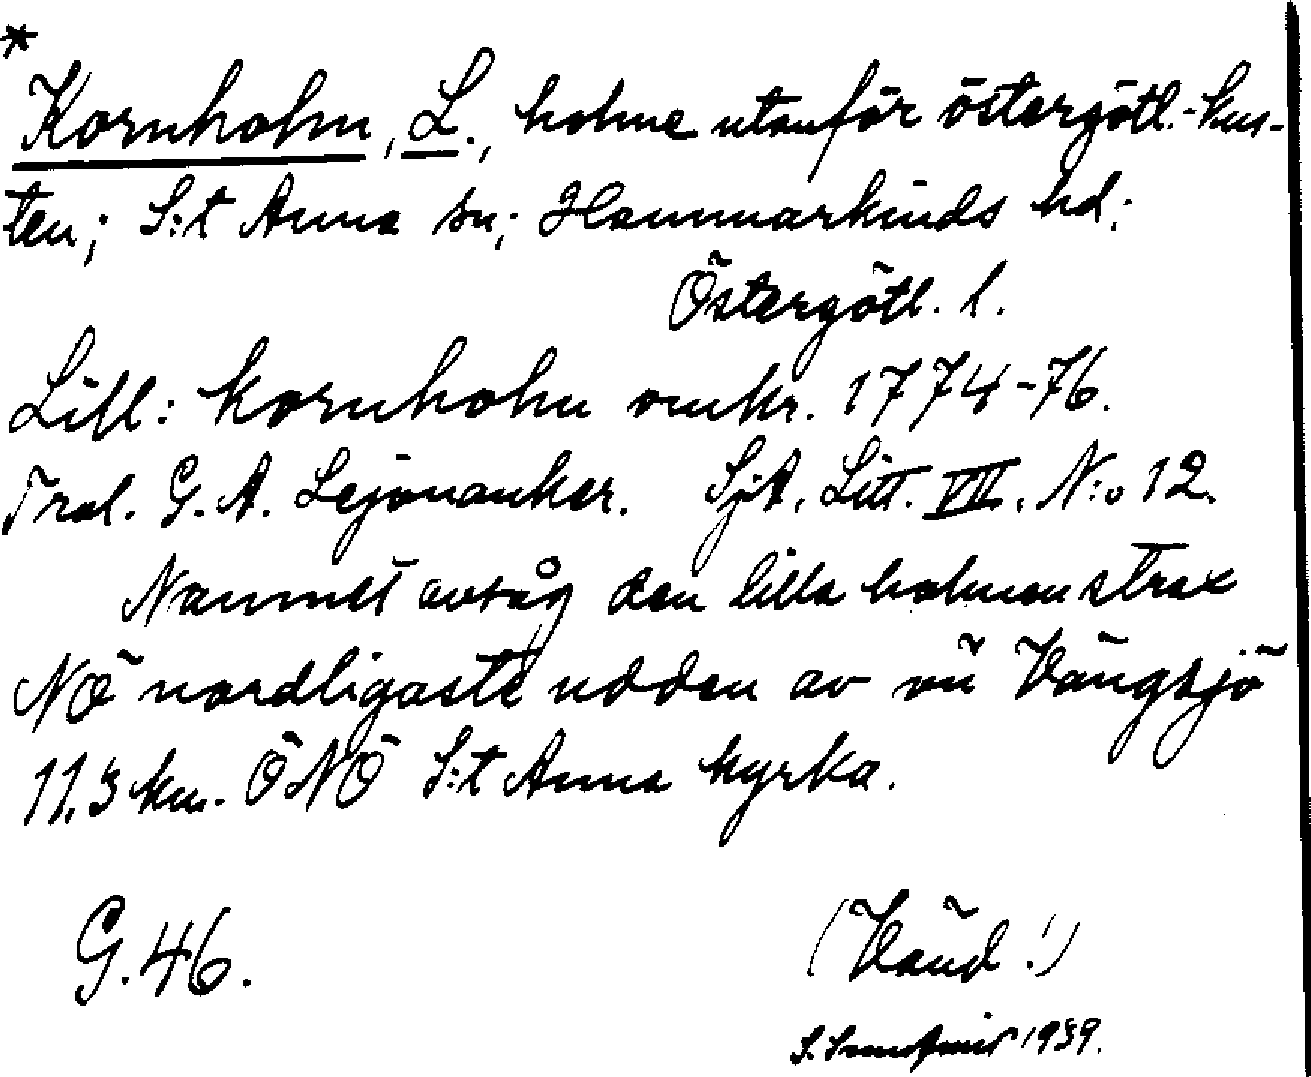 *
Kornholm, L., holme utanför östergötl.-kus-
ten; S:t Anna sn; Hammarkinds hd;
Östergötl. l.
Lill: Kornholm omkr. 1774-76.
Trol. G. A. Lejonanker. SjA. Litt. VII. N:o 12.
Namnet avsåg den lilla holmen strax
NÖ nordligaste udden av nu Vängsjö
11.3 km. ÖNÖ S:t Anna kyrka.
G. 46.
(Vänd!)
S. 1939.